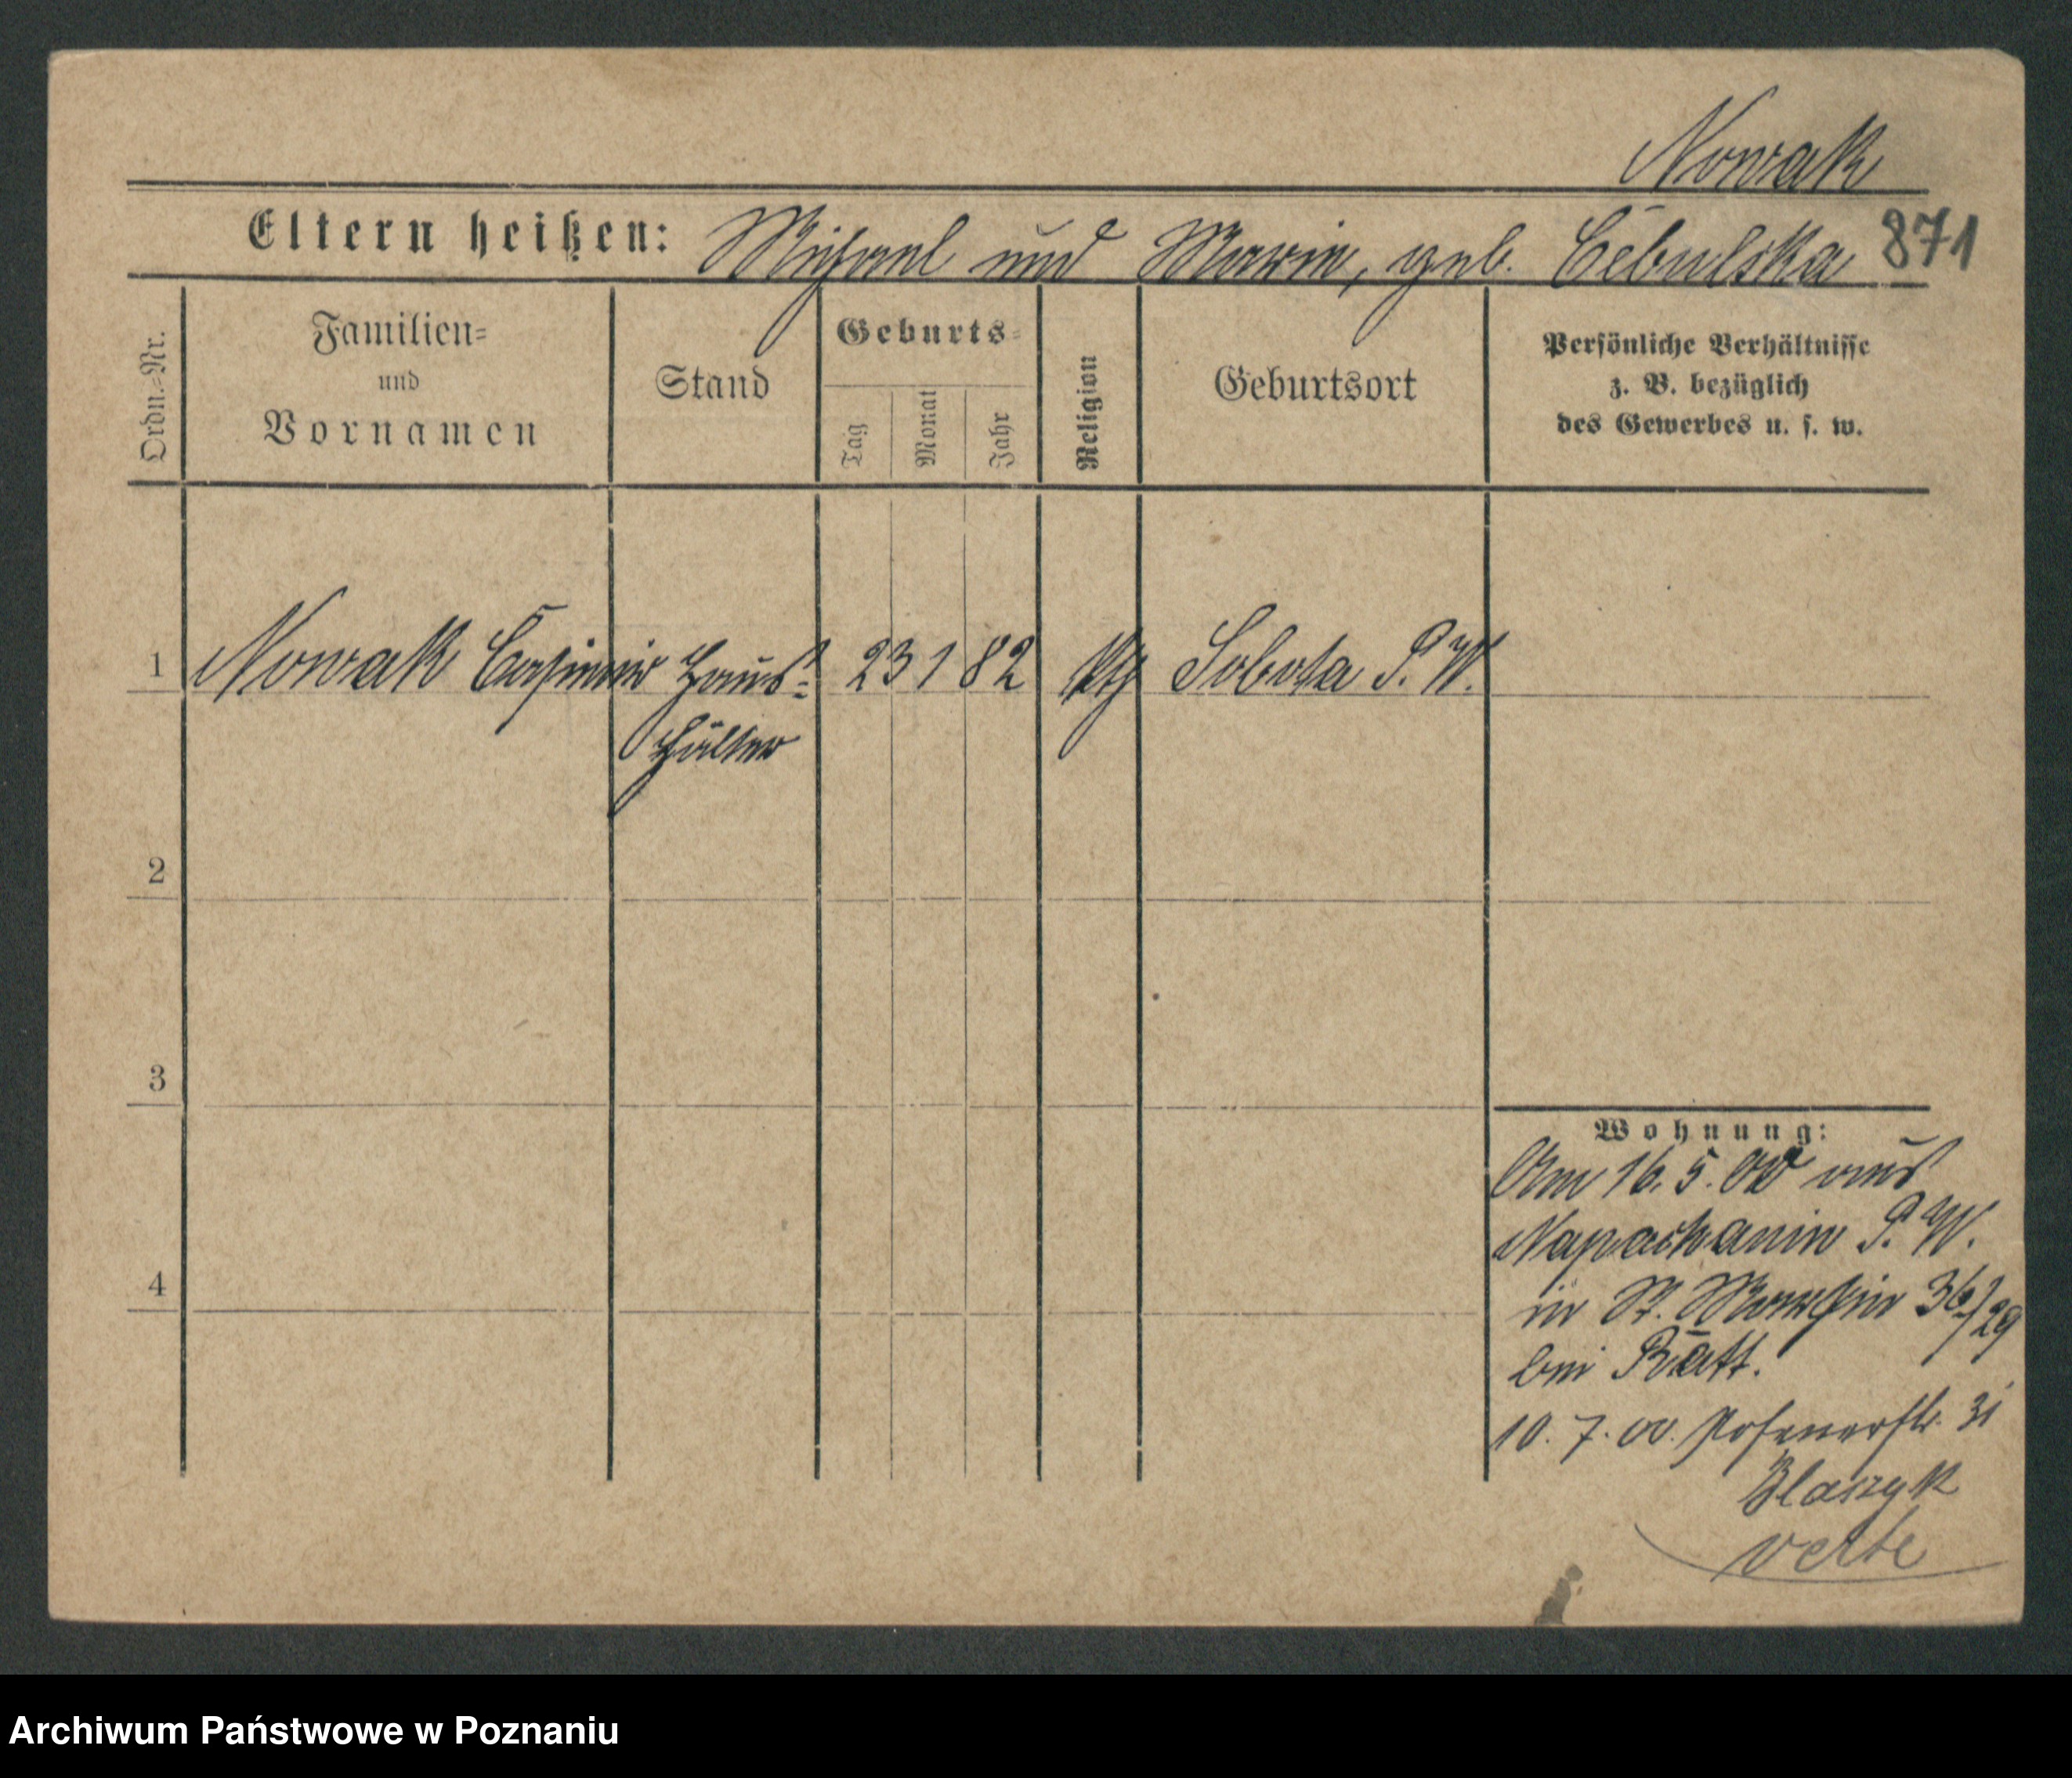 Nowak
Eltern heißen: Michael und Marie, geb. Cebulska 871
Ordn.=Nr.
Familien=
und
Vornamen
Stand
Geburts=
Tag
Monat
Jahr
Religion
Geburtsort
Persönliche Verhältnisse
z. B. bezüglich
des Gewerbes u. s. w.
1 Nowak Casimir Haus= 23 1 82 kth Sobota P. W.
hälter
2
3
4
Wohnung:
Am 16. 5. 00 aus
Napachanin P. W.
in St. Martin 36/29
bei Ratt.
10. 7. 00. Posenerstr. 31
Blaszyk
verte
Archiwum Państwowe w Poznaniu